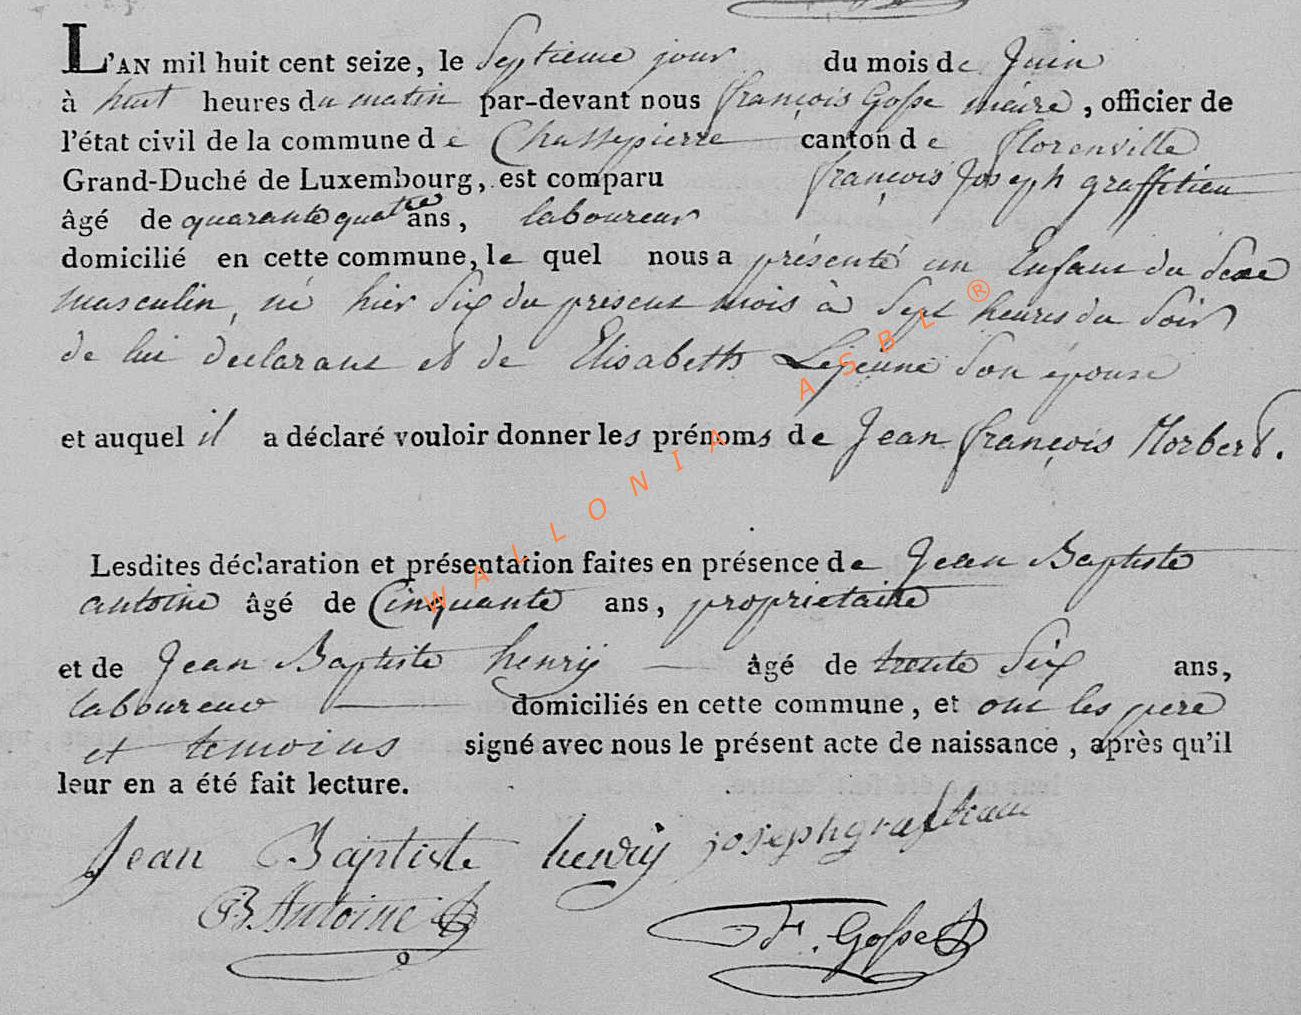 L'AN mil huit cent seize, le Septieme jour du mois de Juin
à huit heures du matin par-devant nous françois Gosse maire, officier de
l'état civil de la commune de Chassepierre canton de florenville
Grand-Duché de Luxembourg, est comparu françois Joseph graffetieu
âgé de quarante quatre ans, laboureur
domicilié en cette commune, le quel nous a présenté un Enfant du Sexe
masculin, né hier Six du présent mois à Sept heures du Soir
de lui declarant et de Elisabeth Lejeune Son épouse
et auquel il a déclaré vouloir donner les prénoms de Jean françois Norbert.
Lesdites déclaration et présentation faites en présence de Jean Baptiste
antoine âgé de Cinquante ans, propriétaire
et de Jean Baptiste henrÿ âgé de trente Six ans,
laboureur domiciliés en cette commune, et ont les pere
et temoins signé avec nous le présent acte de naissance, après qu'il
leur en a été fait lecture.
Jean Baptiste henrÿ joseph
JB Antoine
F. Gosse
WALLONIA ASBL ®